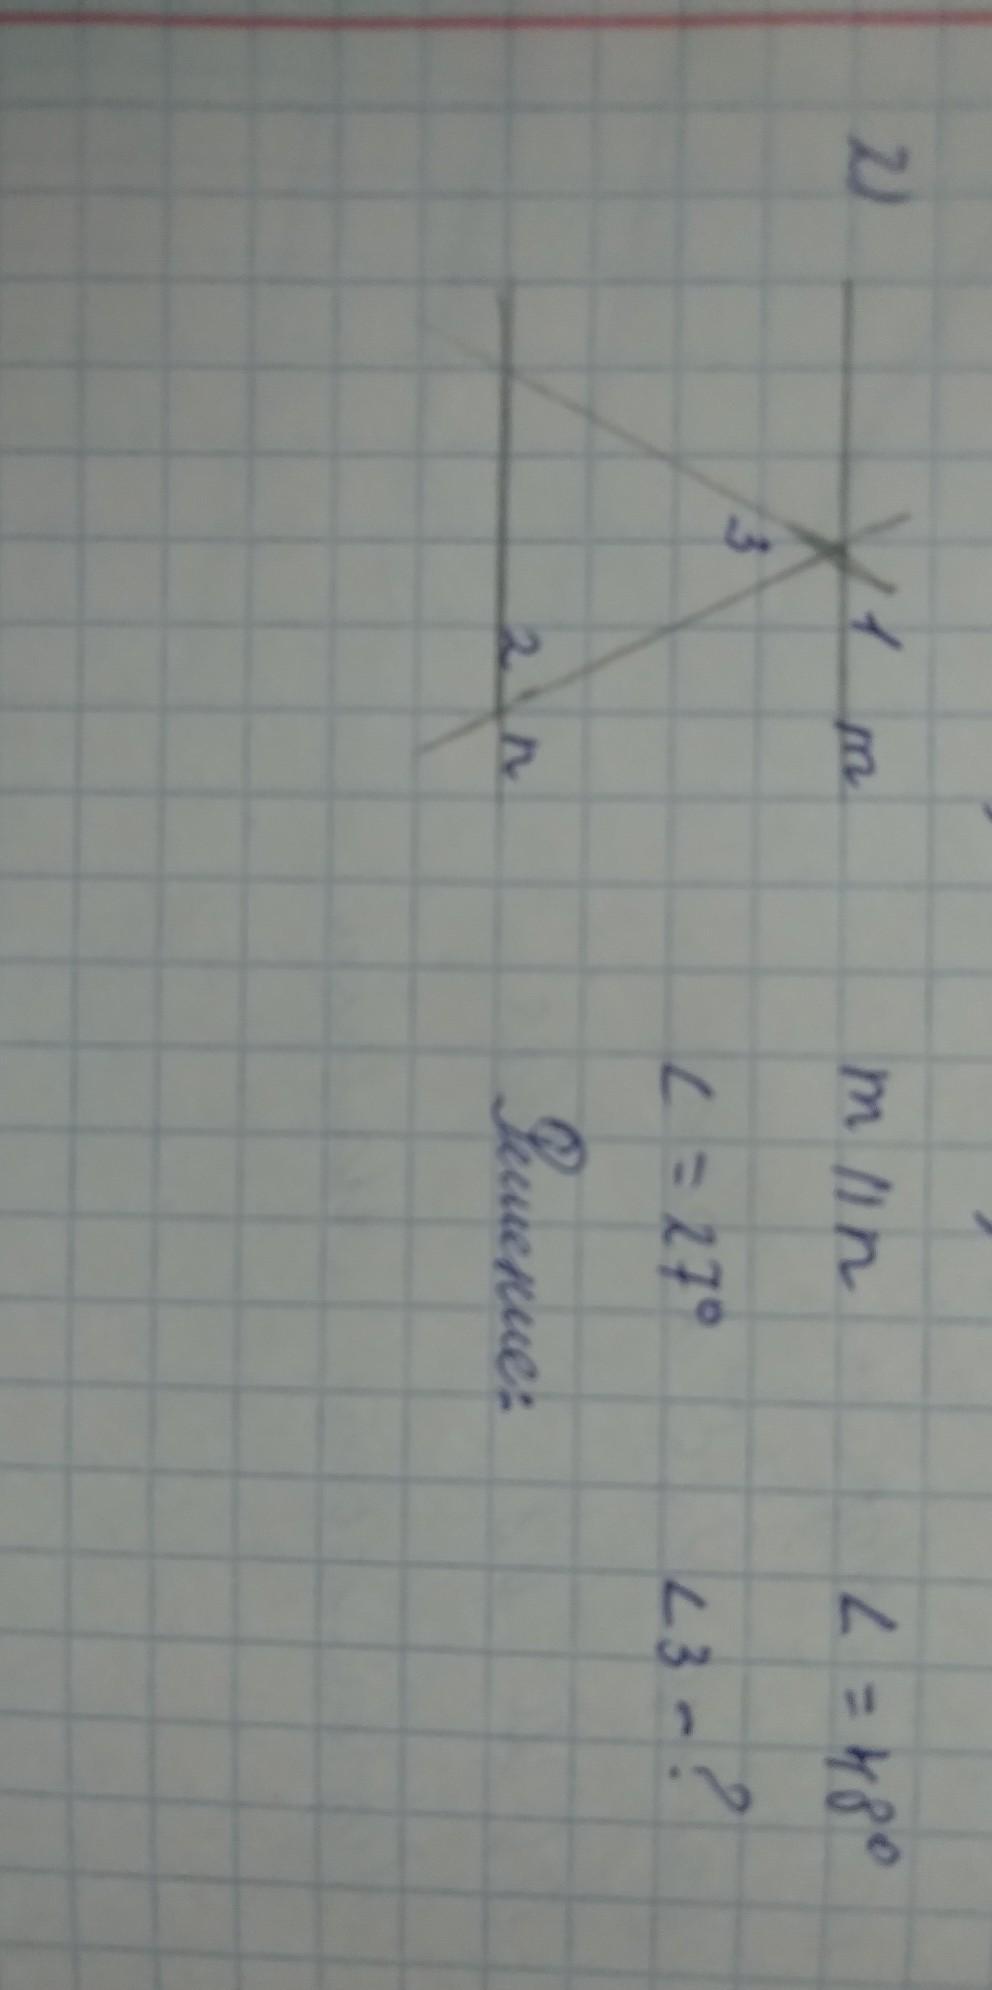 2)
1 m
3
2 n
m || n ∠ = 48°
∠ = 27° ∠3 - ?
Решение: